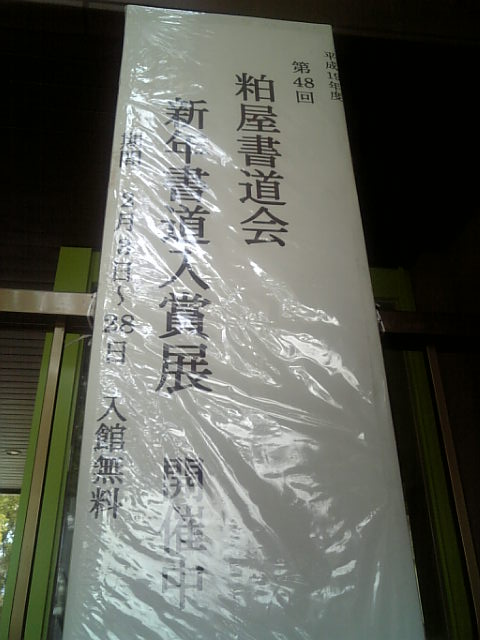 平成19年度
第48回
粕屋書道会
新年書道入賞展 開催中
期間 2月9日～28日 入館無料